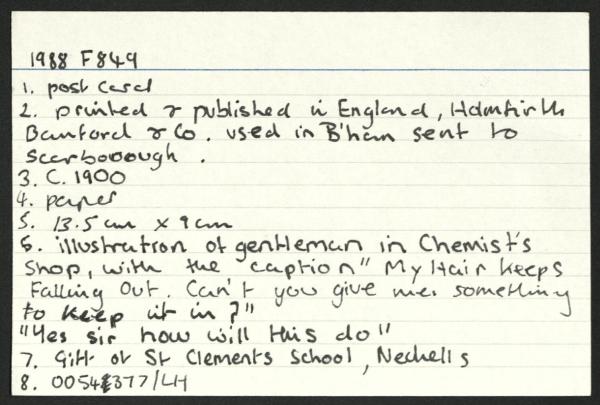 1988 F849
1. post card
2. printed & published in England, Holmfirth
Bamford & Co. used in B'ham sent to
Scarbooough .
3. C. 1900
4. paper
5. 13.5 cm x 9 cm
6. illustration of gentleman in Chemist's
Shop, with the caption "My Hair keeps
Falling Out. Can't you give me something
to keep it in?"
"Yes sir how will this do"
7. Gift of St Clements School, Nechells
8. 0054377/LH